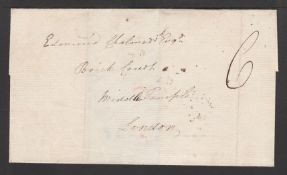 Edmund Chalmers Esqr.
Brick Court
Middle Temple
London
6